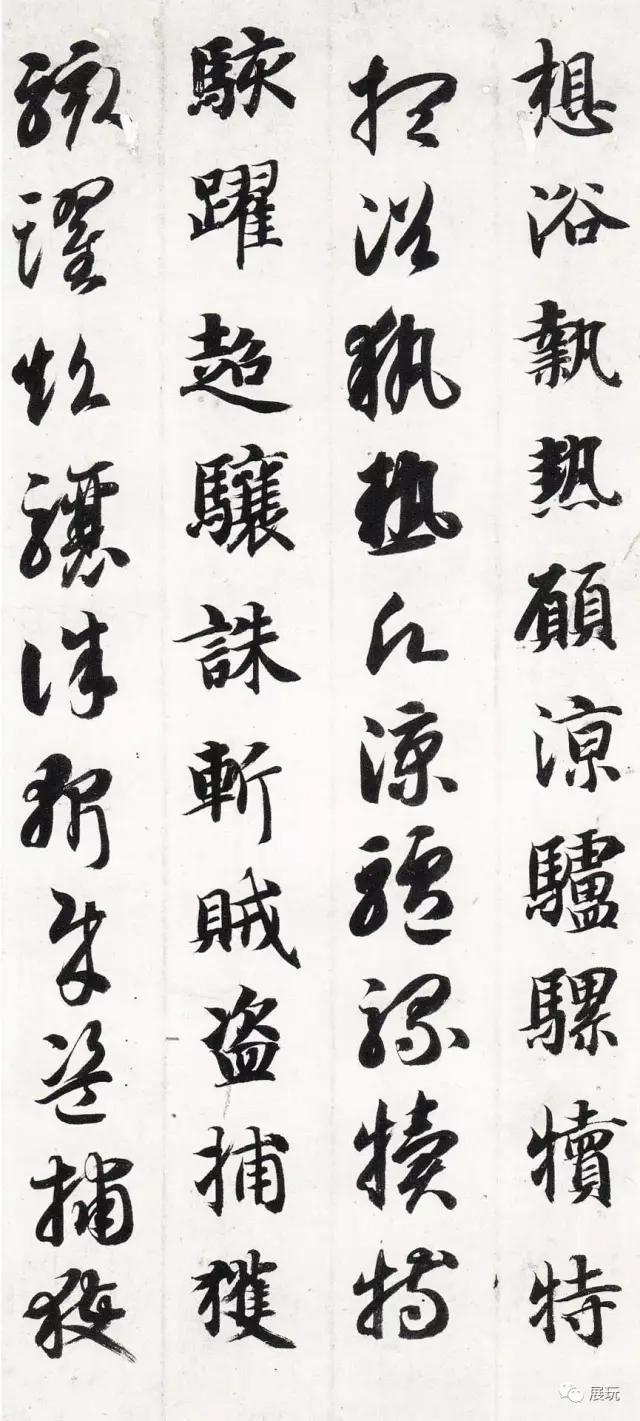 想浴執熱願涼驢騾犢特
想浴執熱願涼驢騾犢特
駭躍超驤誅斬賊盜捕獲
駭躍超驤誅斬賊盜捕獲
展玩